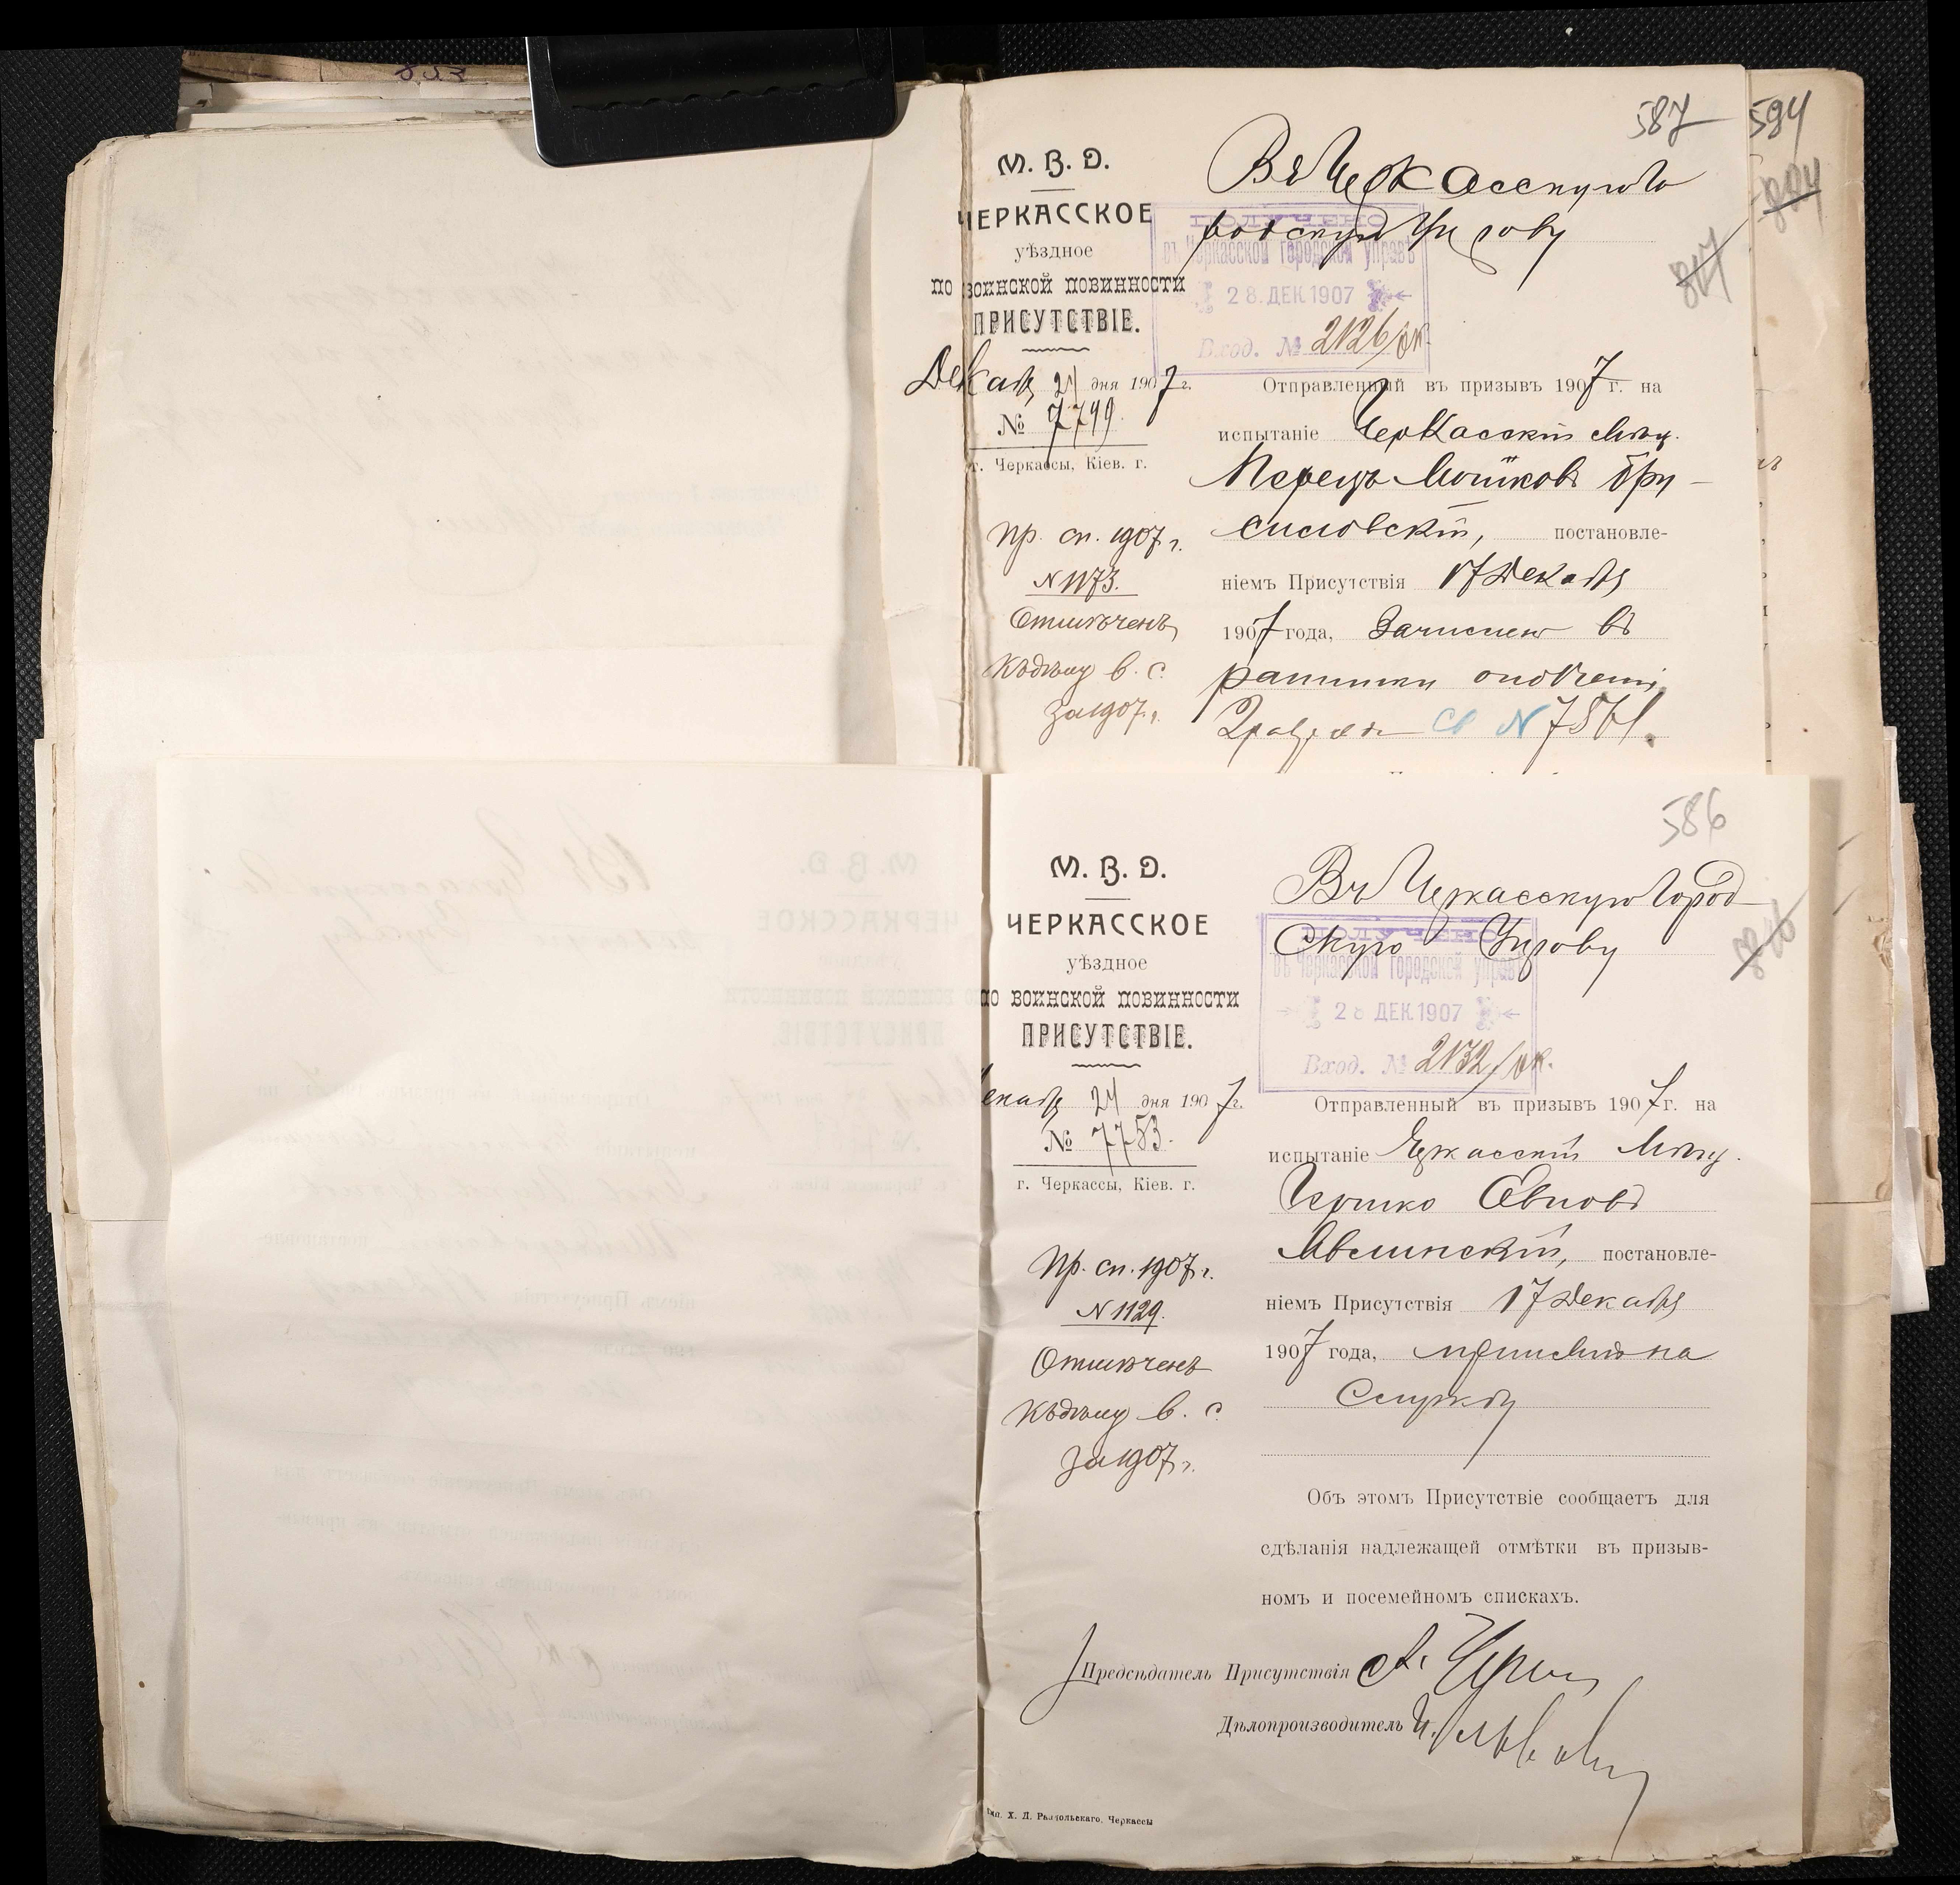 587
594
М. В. D.
ЧЕРКАССКОЕ
уѣздное
по воинской повинности
ПРИСУТСТВІЕ.
Декаб 24 дня 1907 г.
№ 7749.
г. Черкассы, Кіев. г.
Въ Черкасскую Го
родскую Управу
ПОЛУЧЕНО
въ Черкасской Городской управѣ
28. ДЕК. 1907
Вход. № 2126/вк.
817
Отправленный въ призывъ 1907 г. на
испытаніе Черкасскій мѣщ.
Перецъ Мошковъ Бри-
силовскій, постановле-
ніемъ Присутствія 17 Декабря
1907 года, Зачислен въ
ратники ополченія
Св № 7561.
Пр. сп. 1907 г.
N 1173.
Отмѣченъ
в. с.
за 1907 г.
586
М. В. D.
ЧЕРКАССКОЕ
уѣздное
по воинской повинности
ПРИСУТСТВІЕ.
екабр 24 дня 1907 г.
№ 7753.
г. Черкассы, Кіев. г.
Въ Черкасскую Город
скую Управу
ПОЛУЧЕНО
въ Черкасской Городской управѣ
28 ДЕК. 1907
Вход. № 2132/вк.
Отправленный въ призывъ 1907 г. на
испытаніе Черкасскій Мѣщ.
Гершко Сѣвновъ
Явлинскій, постановле-
ніемъ Присутствія 17 Декабря
1907 года, принятъ на
Службу
Пр. сп. 1907 г.
N 1129.
Отмѣченъ
в. с.
за 1907 г.
Объ этомъ Присутствіе сообщаетъ для
сдѣланія надлежащей отмѣтки въ призыв-
номъ и посемейномъ спискахъ.
Предсѣдатель Присутствія
Дѣлопроизводитель
Х. Д. Черкассы